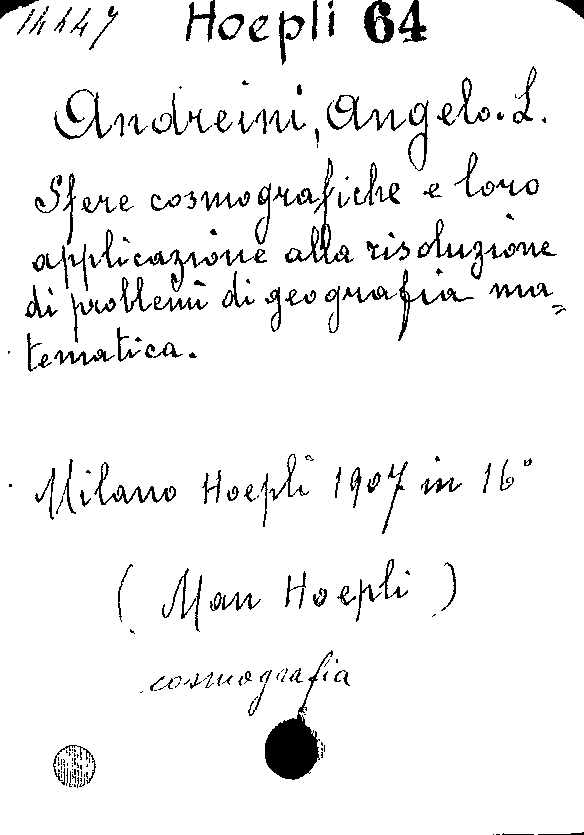 14447 Hoepli 64
Andreini, Angelo. L.
Sfere cosmografiche e loro
applicazione alla risoluzione
di problemi di geografia ma=
tematica.
Milano Hoepli 1907 in 16°
( Man Hoepli )
cosmografia